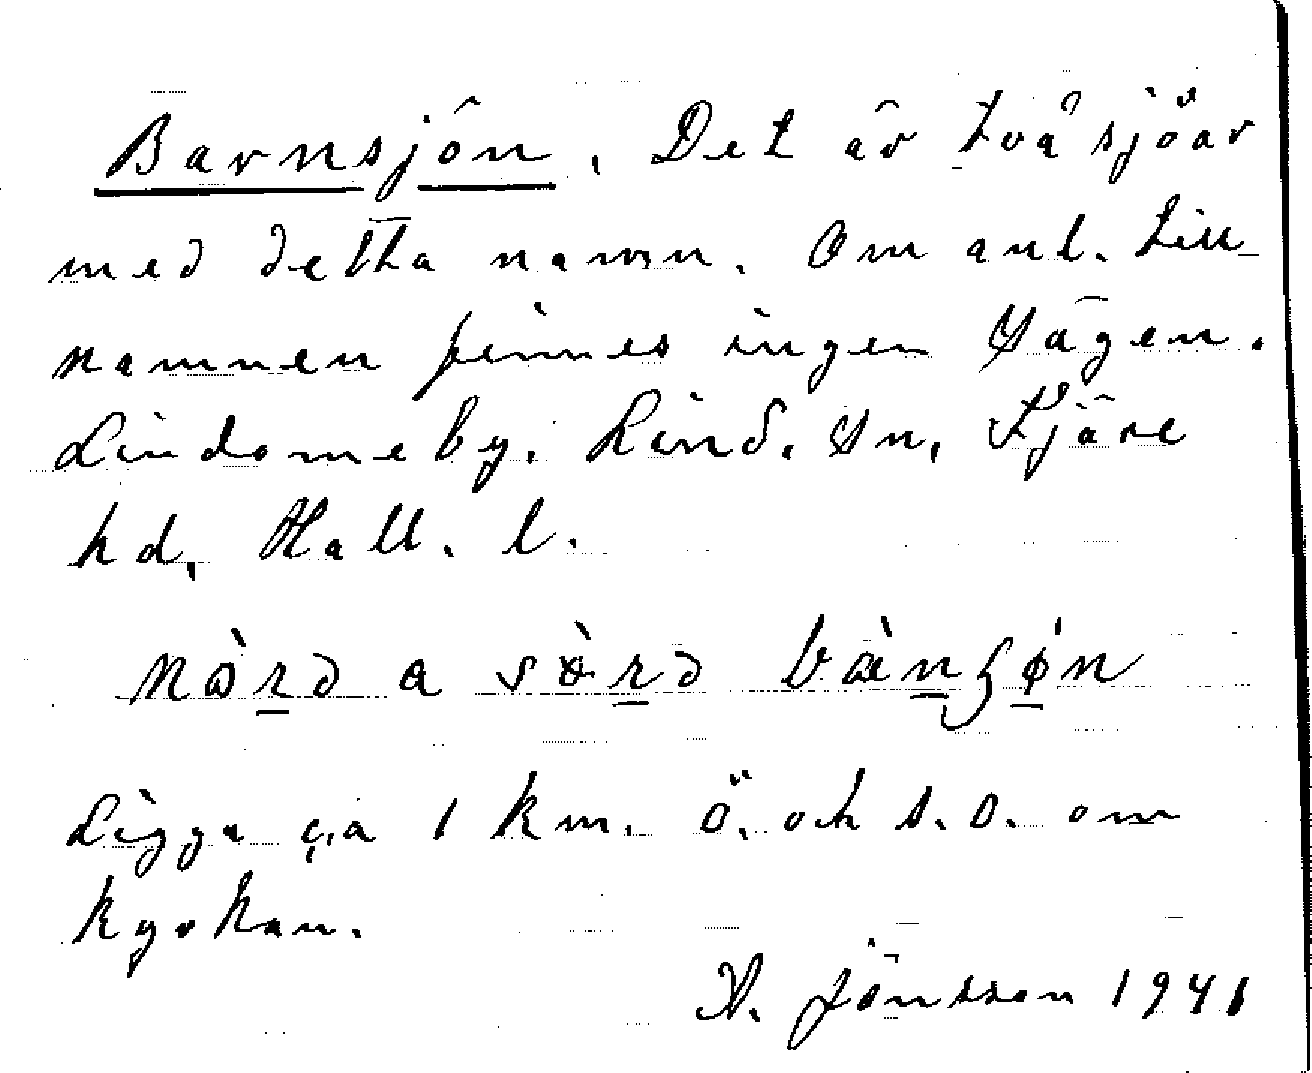 Barnsjön. Det är två sjöar
med detta namn. Om anl. till
namnen finnes ingen sägen.
Lindome by. Lind. sn. Fjäre
hd. Hall. l.
nɔ̀rd a sɤ̀rd bàɳʂǿn
Ligga c:a 1 km. ö. och s.o. om
kyrkan.
A. Jönsson 1941